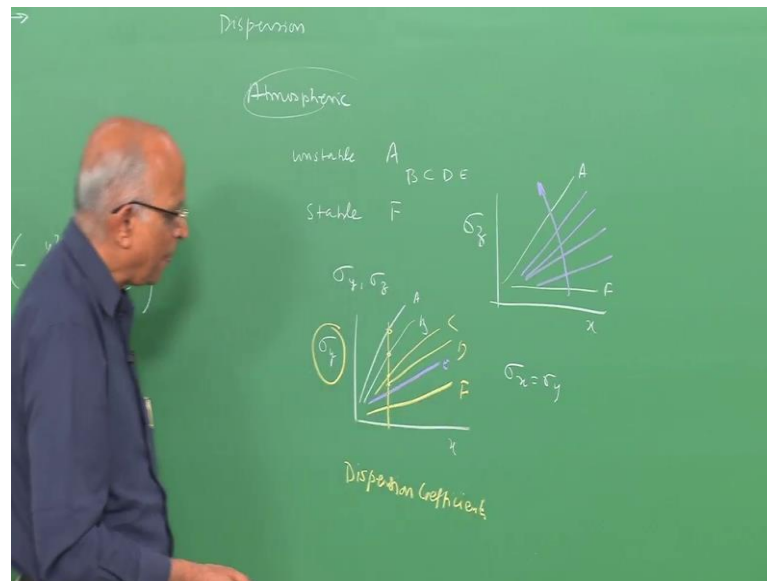 Dispersion
Atmospheric
Unstable A
B C D E
Stable F
σy, σz
σy
A
B
C
D
e
F
x
σz
A
F
x
σx = σy
Dispersion Coefficients